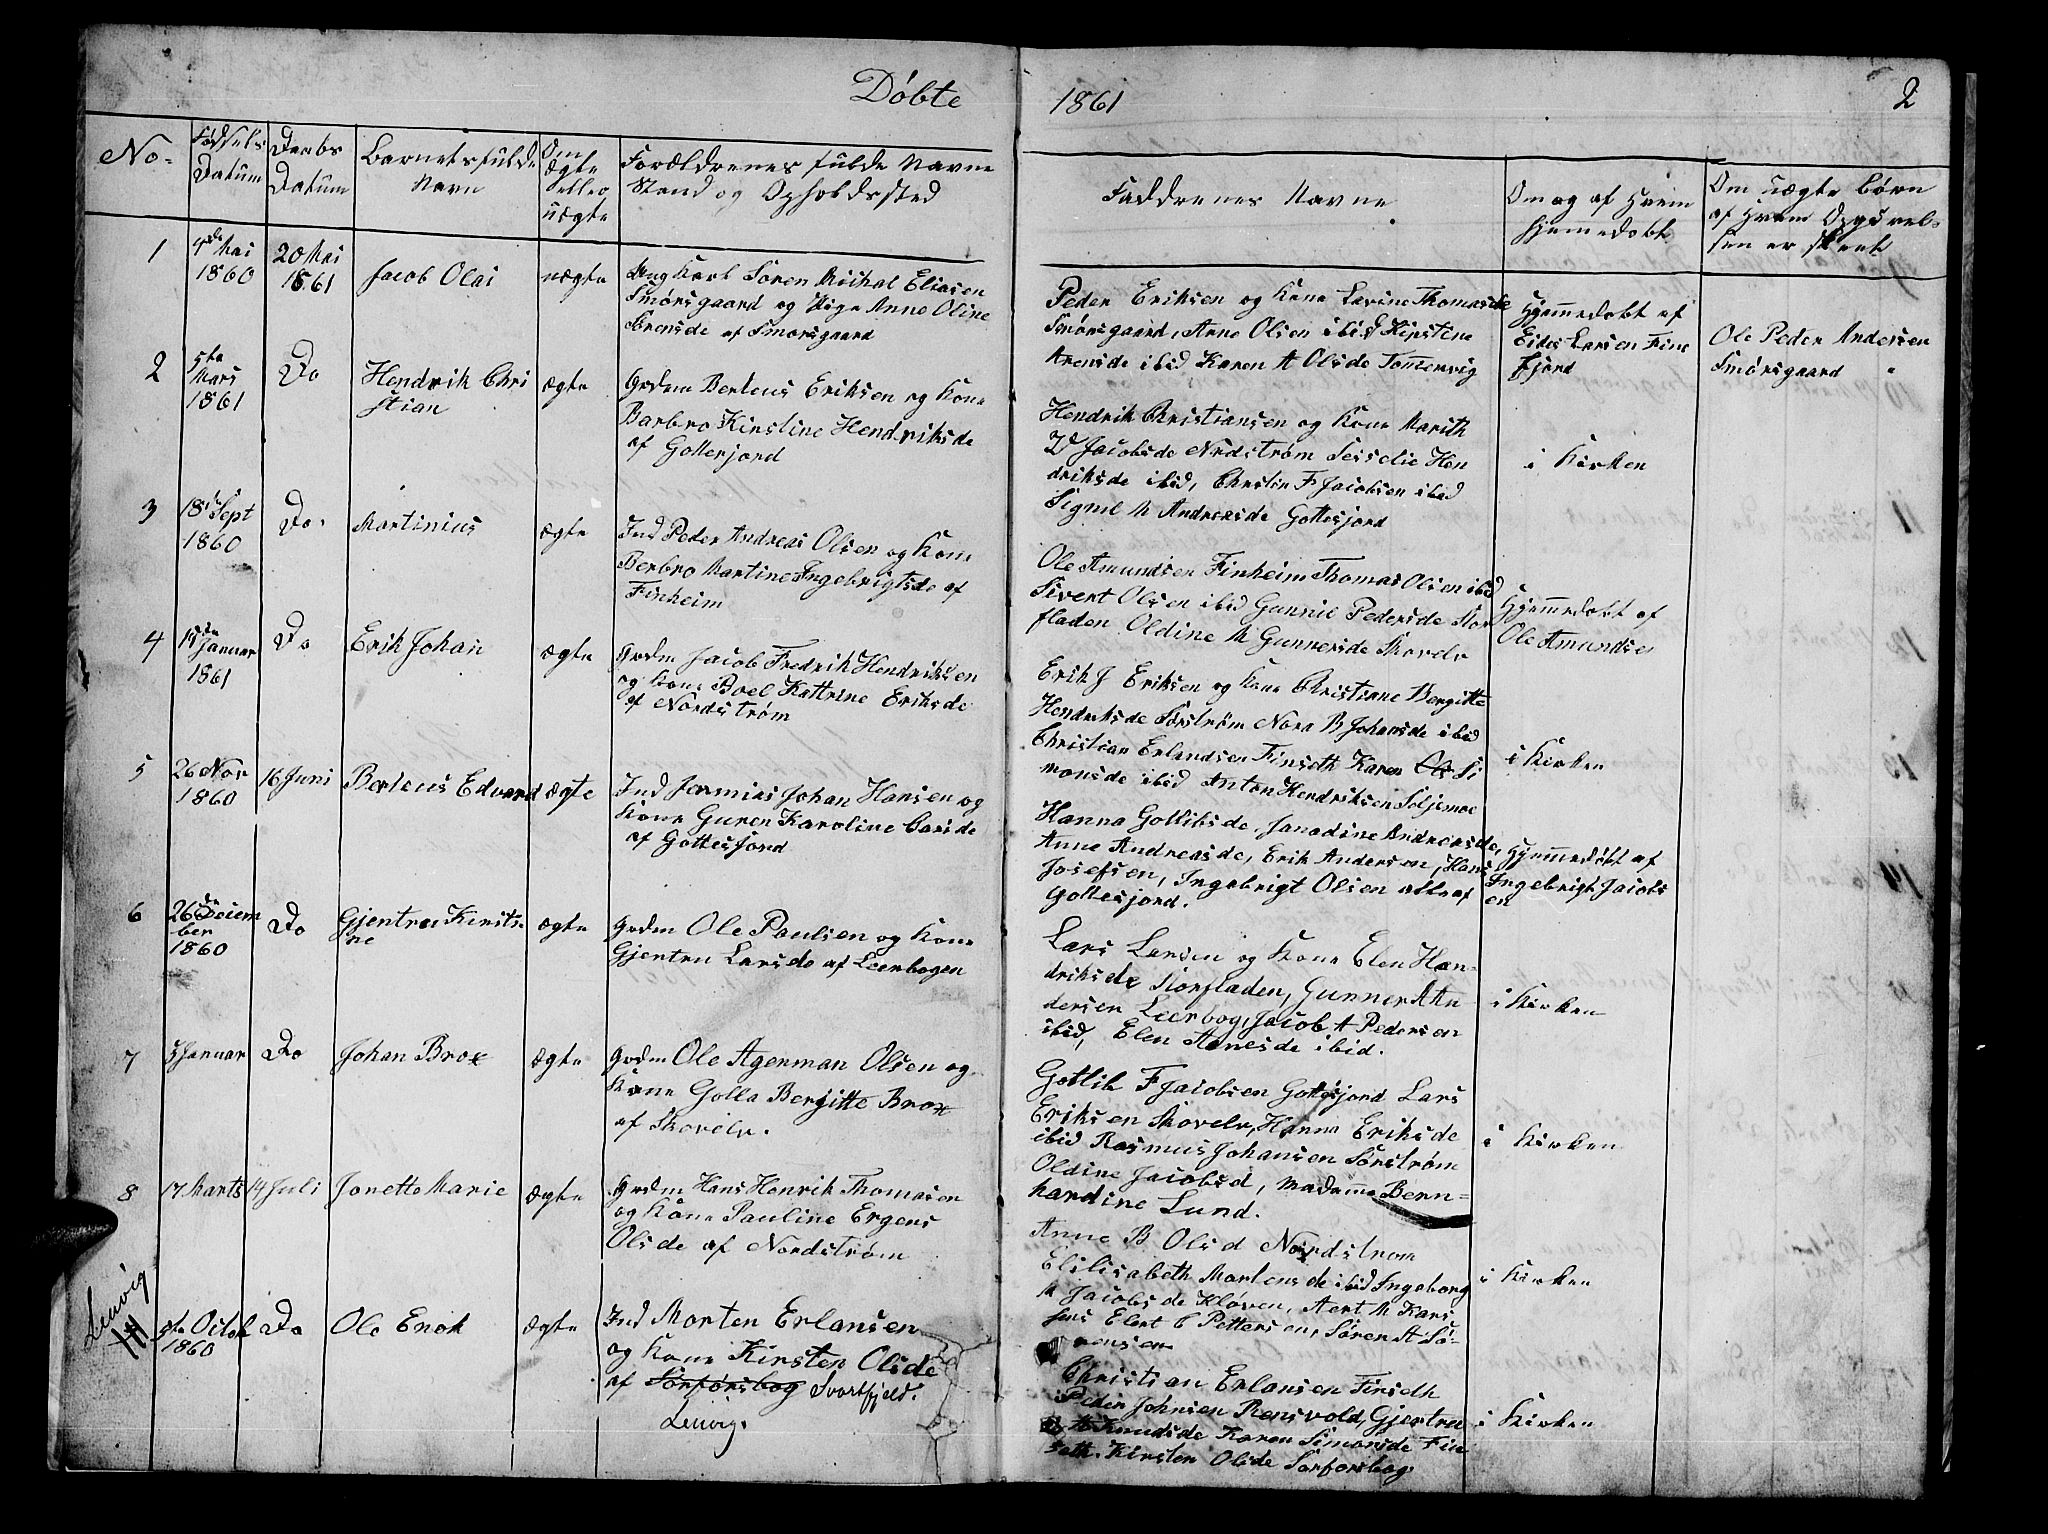 Døbte
1861
2
No.
Fødsels
Datum
Daabs
Datum
Barnets fulde
Navn
Om
Ægte
eller
uægte
Forældrenes fulde Navne
Stand og Opholdssted
Faddrenes Navne
Om og af Hvem
Hjemedøbt
Om uægte børn
af Hvem Opgivel-
sen er skeet
1
4de Mai
1860
20 Mai
1861
Jacob Olai
uægte
Ung Karl Søren Michal Eliasen
Smørsgaard og Pige Anne Oline
Sørensde af Smørsgaard
Peder Eriksen og Kone Lavine Thomasde
Smørsgaard, Arne Olsen ibid Kirstine
Arensde ibid Karen A Olsde Tømervig
Hjemmedøbt af
Eides Larsen Fine
fjord
Ole Peder Andersen
Smørsgaard
2
5te
Mars
1861
Do
Hendrik Chri
stian
ægte
Grdm Berteus Eriksen og Kone
Barbro Kirstine Hendriksde
af Gottesjord
Hendrik Christiansen og Kone Marith
Jacobsde Nrdstrøm Sesselie Hen
driksde ibid, Christin F Jacobsen ibid
Signil M Andreasde Gottesjord
i Kirken
3
18de Sept
1860
Do.
Martinius
ægte
Ind Peder Andreas Olsen og Kone
Berbro Martine Ingebrigtsde af
Finheim
Ole Amundsen Finheim Thomas Olsen ibid
Sivert Olsen ibid Gunnil Pedersde Stor
fladen Oldine M Gunnersde Skovelv
Hjemmedøbt af
Ole Amundsen
4
19de
Januar
1861
Do
Erik Johan
ægte
Grdm Jacob Fredrik Hendriksen
og Kone Boel Kattrine Eriksde
af Nordstrøm
Erik J Eriksen og Kone Christiane Bergitte
Hendriksde Sørstrøm Nora B Johansde ibid
Christian Erlandsen Finseth Karen Si
monsde ibid Anton Hendriksen Soljemoe
i Kirken
5
26 Nov
1860
16 Juni
Berteus Edvard
ægte
Ind Jermias Johan Hansen og
Kone Guren Karoline Carsde
af Gottesjord
Hanna Gottlibsde, Janadine Andreasde,
Anne Andreasde, Erik Andersen, Hans
Josefsen, Ingebrigt Olsen alle af
Gottesjord.
Hjemmedøbt af
Ingebrigt Jacobs
en
6
26de Decem
ber
1860
Do
Gjertru Kirsti
ne
ægte
Grdm Ole Paulsen og Kone
Gjertru Larsde af Leerbogen
Lars Larsen og Kone Elen Hen-
driksde Storfladen, Gunner A An
dersen Leerbog, Jacob A Pedersen
ibid, Elen Arnesde ibid.
i Kirken
7
5 Januar
Do
Johan Brox
ægte
Grdm Ole Agenman Olsen og
Kone Golla Bergitte Brox
af Skovelv.
Gotlib F Jacobsen Gottesjord Lars
Eriksen Skovelv, Hanna Eriksde
ibid Rasmus Johansen Sørstrøm
Oldine Jacobsd, Madamme Bern-
hardine Lund.
i Kirken
8
17 Marts
14 Juli
Jonette Marie
ægte
Grdm Hans Henrik Thomasen
og Kone Pauline Ergens
Olsde af Nordstrøm
Anne B Olsd Nordstrøm
Elilisabeth Mortensde ibid Ingeborg
M Jacobsde Kløven, Aert M Kars
tens Elert C Pettersen, Søren A Sø-
rensen
i Kirken
Lenvig
5te Octob
1860
Do
Ole Enok
ægte
Ind Morten Erlansen
og Kone Kirsten Olsde
af Sørforsbog Svartfjeld.
Lenvig.
Christian Erlansen Finseth
Peder Johnsen Rensvold, Gjertru
A Knudsde Karen Simonsde Fin
seth. Kirsten Olsde Sørforsbog
i Kirken